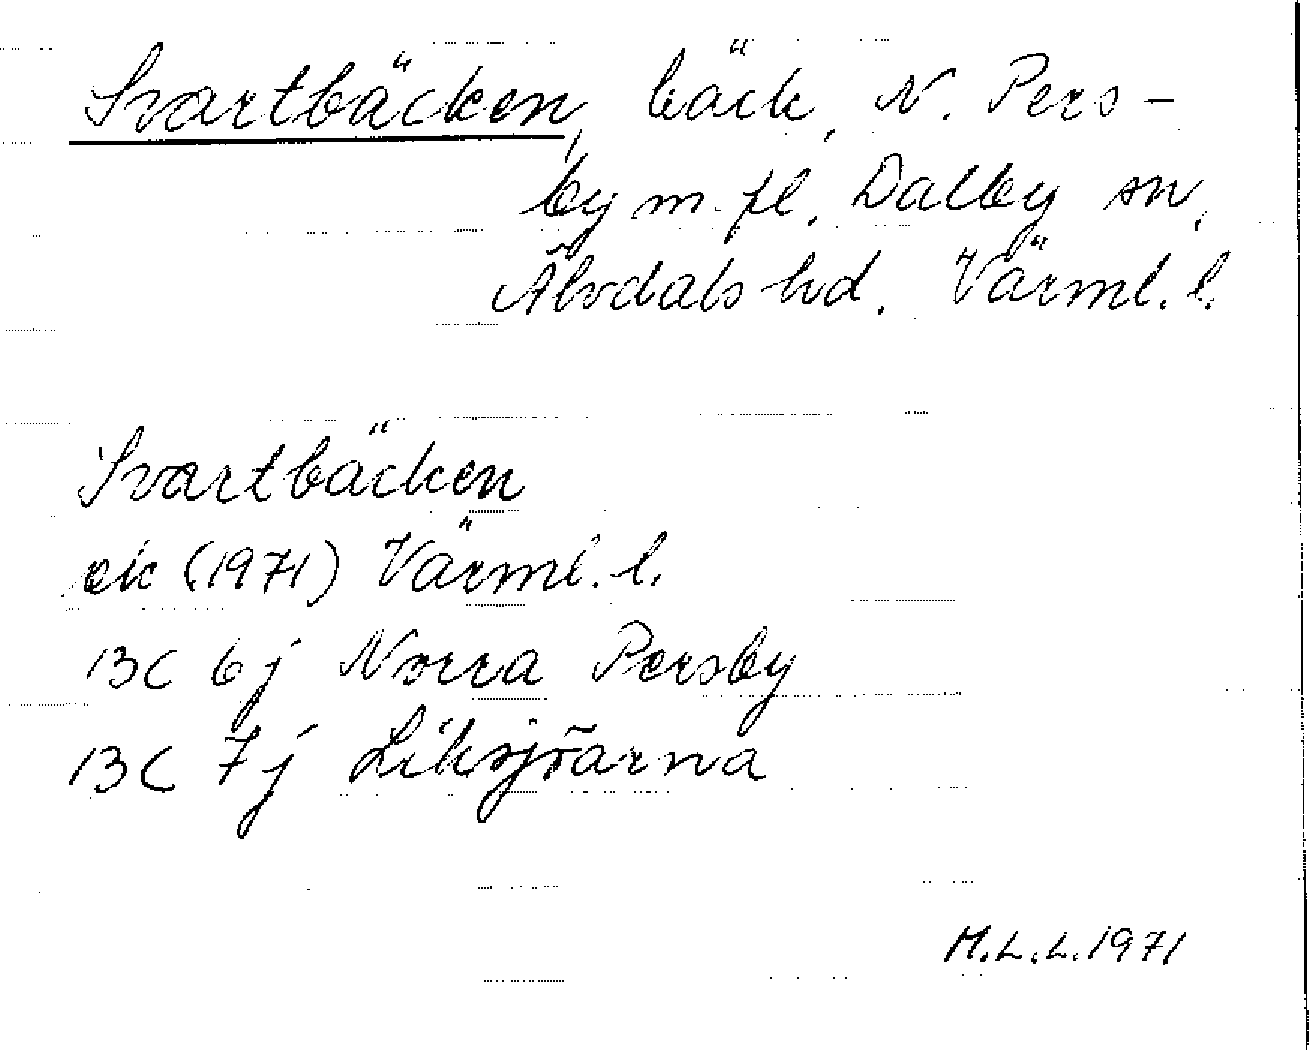 Svartbäcken, bäck, N. Pers-
by m. fl. Dalby sn,
Älvdals hd. Värml. l.
Svartbäcken
ek (1971) Värml. l.
13C 6j Norra Persby
13C 7j Liksjöarna
M.L.L. 1971